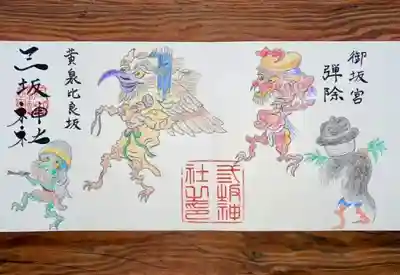 御坂宮
弾除
黄泉比良坂
三坂神社
坂神
社